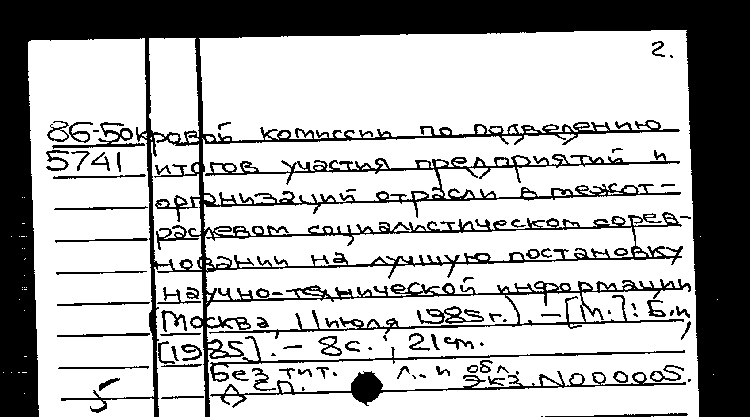 2.
86-5окровой комиссии по подведению
5741 итогов участия предприятий и
организаций отрасли в межот-
раслевом социалистическом сорев-
новании на лучшую постановку
научно-технической информации
(Москва, 11 июля 1985 г.). – [М.]: Б.и,
[1985]. – 8с.; 21см.
Без тит. л. и обл.
СП. Экз. N000005.
5